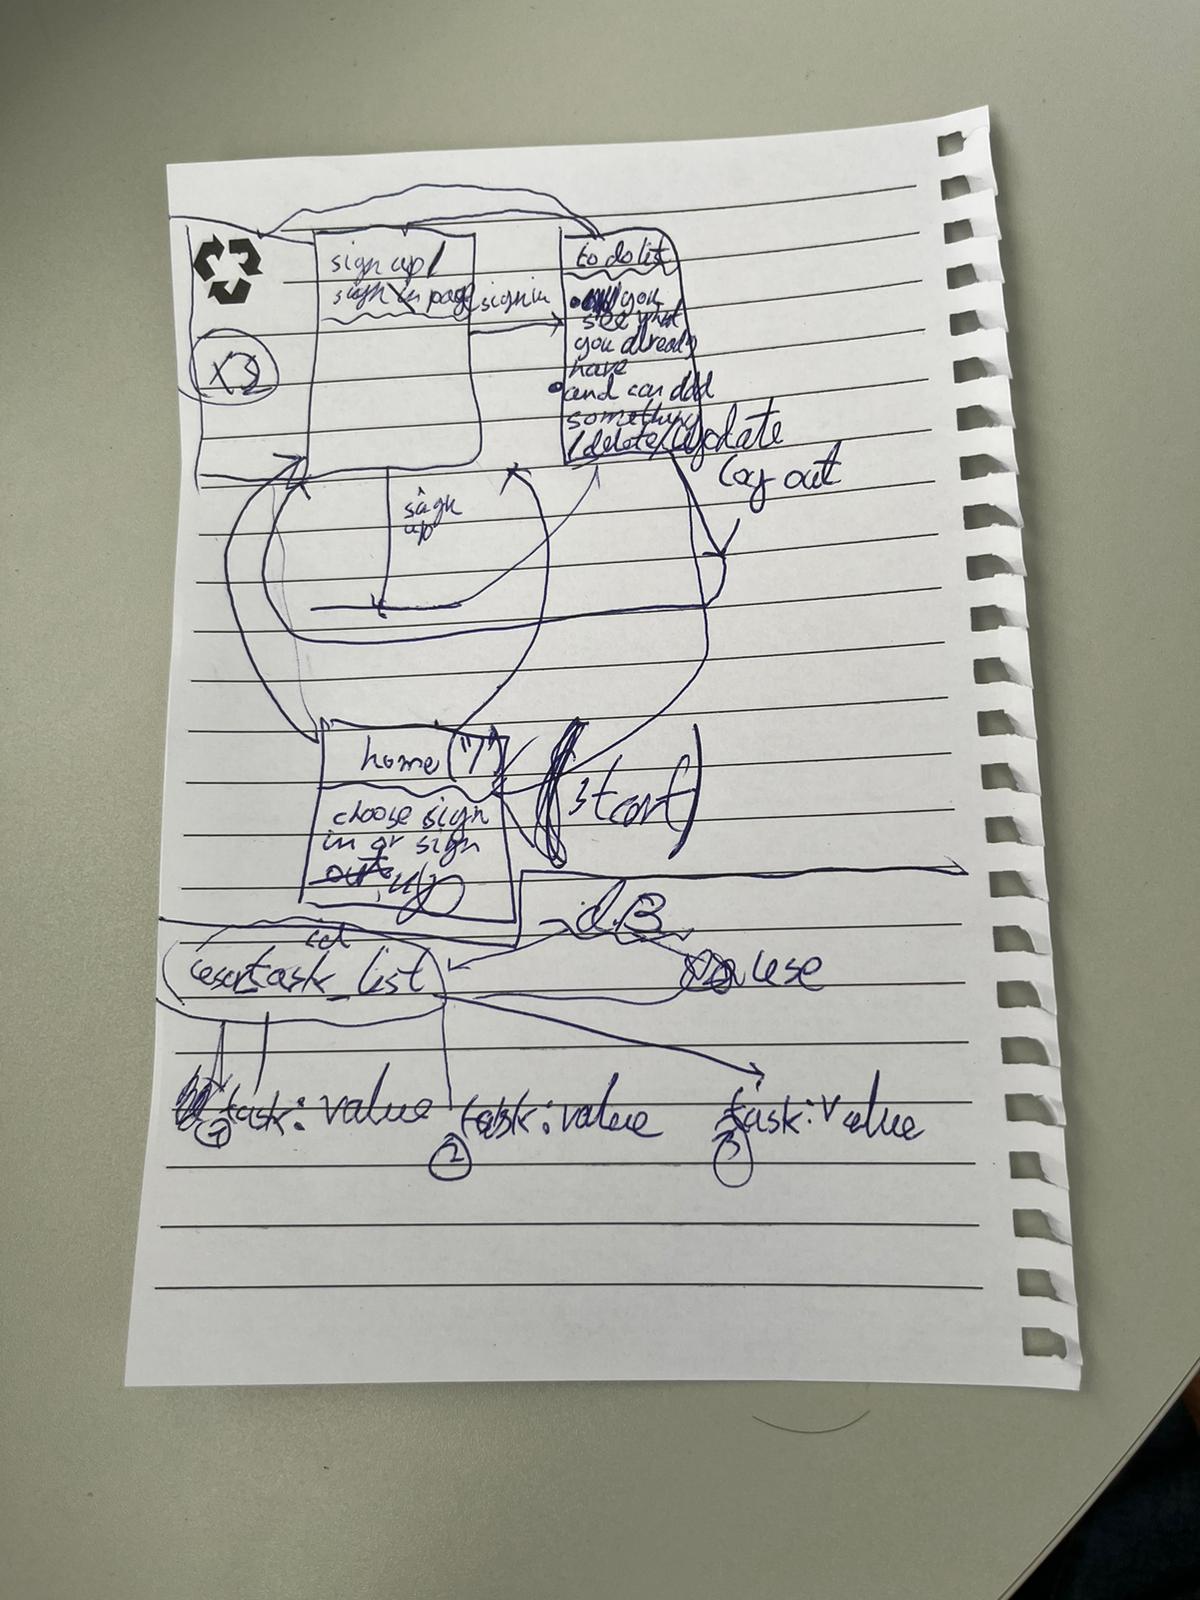 sign up /
sign in page
sign in
X3
to do list
you
see what
you already
have
and can add
something
/delete/update
log out
sign
up
home ("/")
start
choose sign
in or sign
up
dB
id
task_list
use
task: value
task: value
task: value
1
2
3